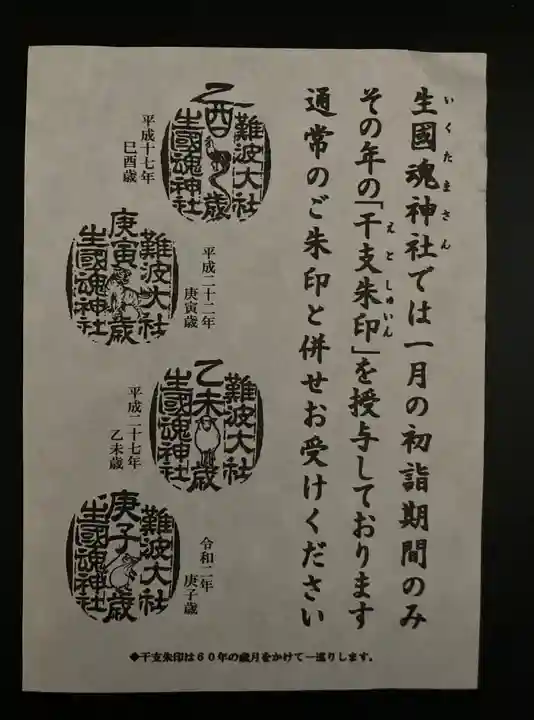 生國魂神社では一月の初詣期間のみ
いくたまさん
その年の「干支朱印」を授与しております
えとしゅいん
通常のご朱印と併せお受けください
難波大社
乙酉歳
生國魂神社
平成十七年
巳酉歳
難波大社
庚寅歳
生國魂神社
平成二十二年
庚寅歳
難波大社
乙未歳
生國魂神社
平成二十七年
乙未歳
難波大社
庚子歳
生國魂神社
令和二年
庚子歳
◆干支朱印は60年の歳月をかけて一巡りします。